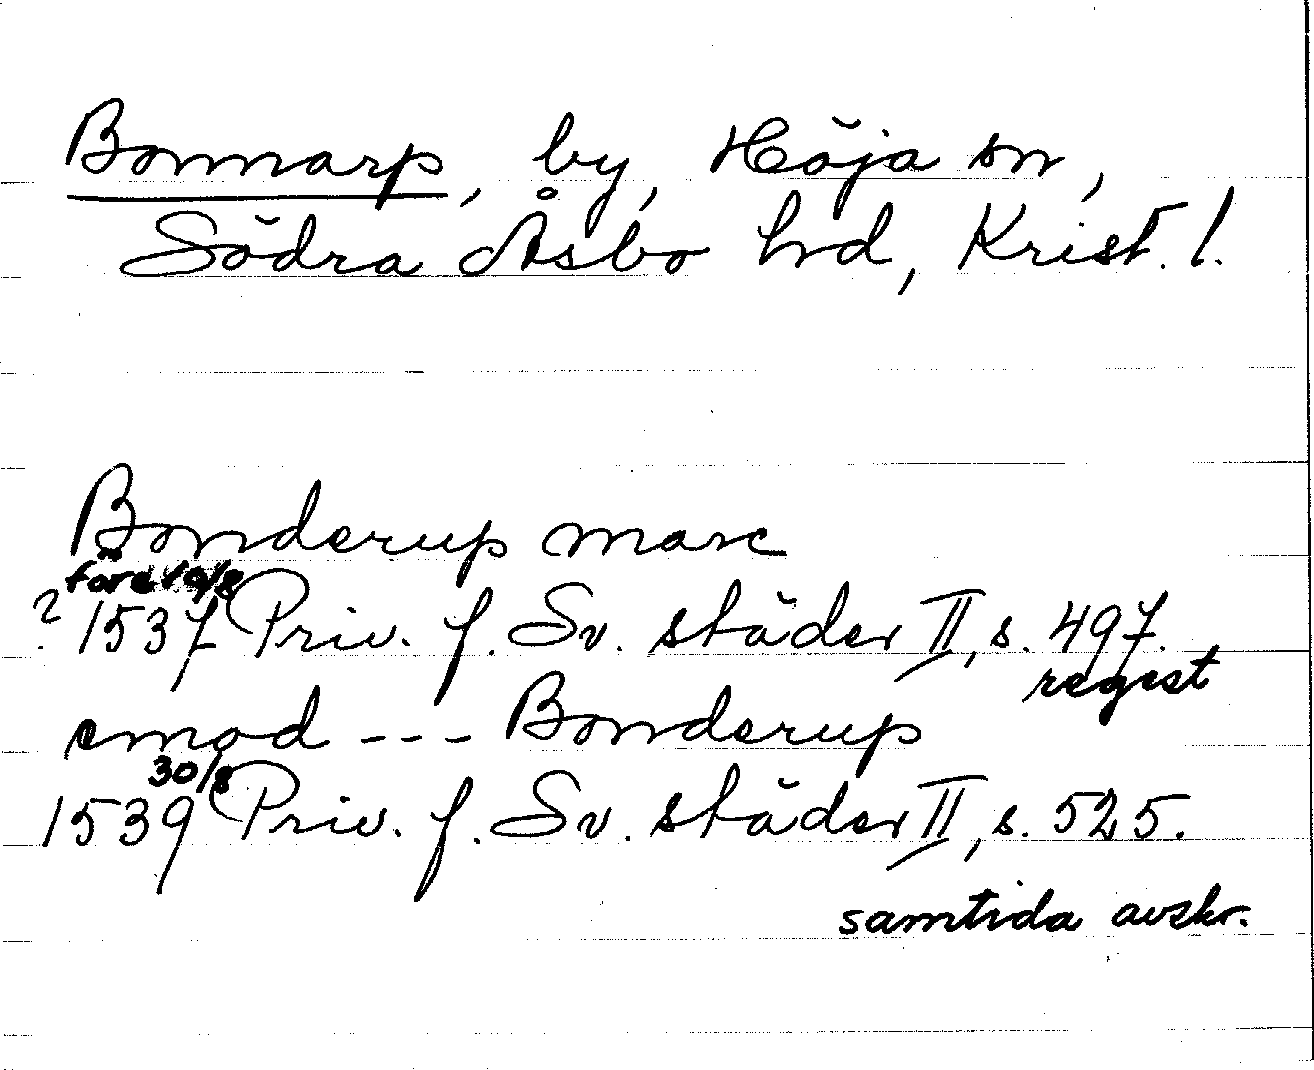 Bonnarp, by, Höja sn,
Södra Åsbo hd, Krist. l.
Bonderup marc
före 10/8
? 1537 Priv. f. Sv. städer II, s. 497.
regest
emod --- Bonderup
30/8
1539 Priv. f. Sv. städer II, s. 525.
samtida avskr.